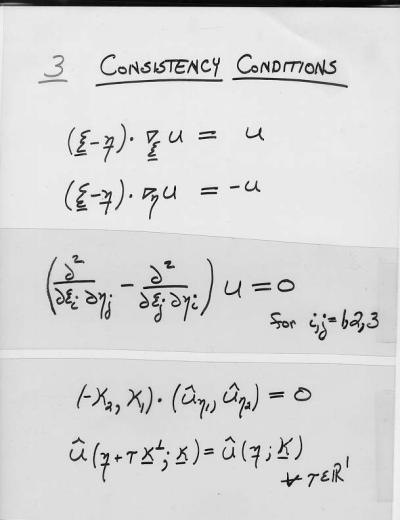 3 CONSISTENCY CONDITIONS
(ξ-η)·∇_ξ u = u
(ξ-η)·∇_η u = -u
(∂²/∂ξi∂ηj - ∂²/∂ξj∂ηi) u = 0
for i,j=1,2,3
(-K₂, K₁)·(û_η₁, û_η₂) = 0
û(η+τK^⊥; K) = û(η; K)
∀ τ∈ℝ¹